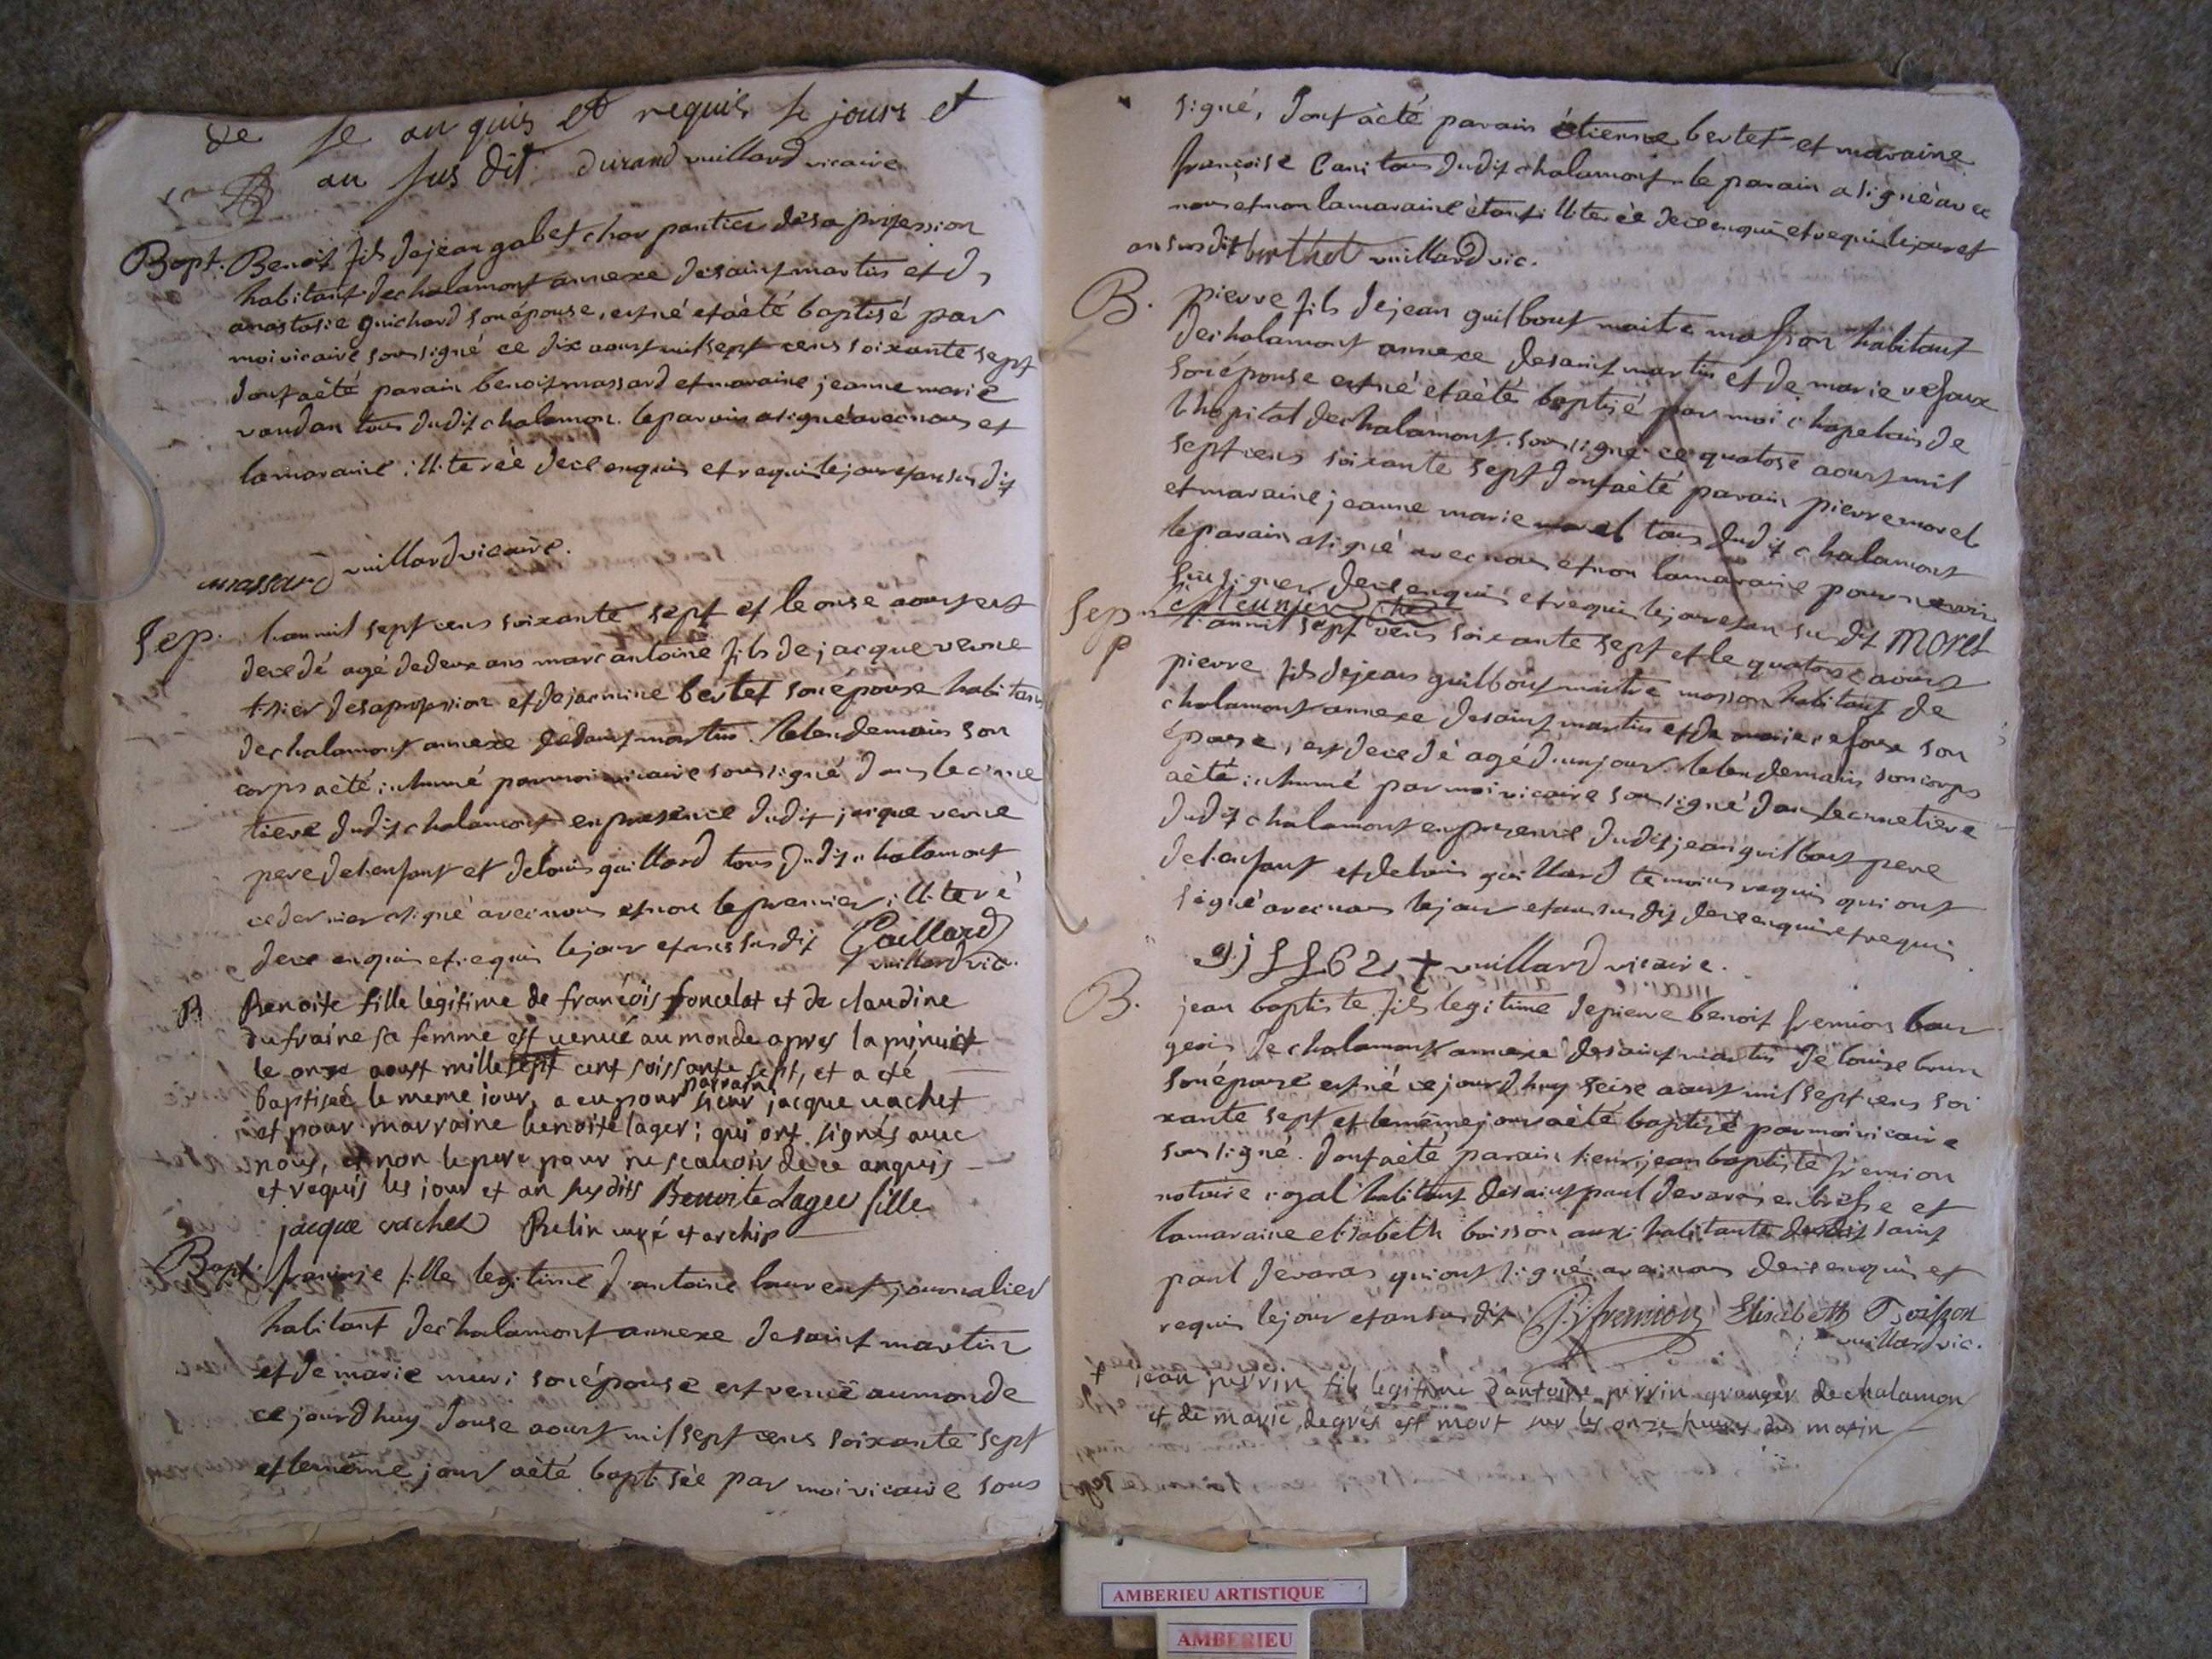 de se an quis et requis le jours et
an sus dit durand vuillard vicaire
Bapt. Benoit fils de jean gabet charpantier de sa profession
habitant de chalamont annexe de saint martin et d
anastasie guichard son épouse, est né et a èté baptisé par
moi vicaire soussigné ce dix aoust mil sept cens soixante sept
dont a èté parain benoit massard et maraine jeanne marie
vaudan tous dudit chalamon. le parain a signé avec nous et
la maraine illiterée de ce enquis et requis le jour et an susdit
massard vuillard vicaire.
Sep. l'an mil sept cens soixante sept et le onse aoust est
decedé agé de deux ans marc antoine fils de jacque verne
tisier de sa profession et de jacmine bertet son épouse habitans
de chalamont annexe de saint martin. le lendemain son
corps a èté inhumé par moi vicaire soussigné dans le cime
tiere dudit chalamont en presence dudit jacque verne
pere de l'enfant et de louis gaillard tous dudit chalamont
ce dernier a signé avec nous et non le premier illiteré
de ce enquis et requis le jour et an susdit Gaillard
vuillard vic.
B Benoite fille légitime de francois foncelat et de claudine
dufraine sa femme est venuë au monde apres la minuit
le onze aoust mille sept cent soissante sept, et a eté
baptiseé le meme jour, a eu pour parrain sieur jacque vachet
et pour marraine benoite lager; qui ont signés avec
nous, et non le pere pour ne scauoir de ce anquis
et requis les jour et an susdits Benoite Lager fille
jacque vachet Relin curé et archip
Bapt. francoise fille legitime d'antoine laurent journalier
habitant de chalamont annexe de saint martin
et de marie muri son épouse est venuë au monde
ce jourdhuy douse aoust mil sept cens soixante sept
et le même jour a èté baptisée par moi vicaire sous
signé, dont a èté parain étienne bertet et maraine
françoise Cani tous dudit chalamont. le parain a signé avec
nous et non la maraine étant illiterée de ce enquis et requis le jour et
an susdit berthet vuillard vic.
B. pierre fils de jean guilbout maitre masson habitant
de chalamont annexe de saint martin et de marie vefaux
son épouse est né et a èté baptisé par moi chapelain de
l'hopital de chalamont soussigné ce quatose aoust mil
sept cens soixante sept dont a èté parain pierre morel
et maraine jeanne marie morel tous dudit chalamont
le parain a signé avec nous et non la maraine pour ne savoir
signer de ce enquis et requis le jour et an susdit morel
Sep. l'an mil sept cens soixante sept et le quatose aoust
p pierre fils de jean guilbout maitre masson habitant de
chalamont annexe de saint martin et de marie vefaux son
épouse, est decedé agé d'un jour. le lendemain son corps
a èté inhumé par moi vicaire soussigné dans le cimetiere
dudit chalamont en presence dudit jean guilbout pere
de l'enfant et de louis gaillard temoins requis qui ont
signé avec nous le jour et an susdit de ce enquis et requis
vuillard vicaire.
B. jean baptiste fils legitime de pierre benoit fremion bour
geois de chalamont annexe de saint martin de louise brun
son épouse est né ce jourdhuy seise aout mil sept cens soi
xante sept et le même jour a èté baptisé par moi vicaire
soussigné. dont a èté parain sieur jean baptiste fremion
notaire royal habitant de saint paul de varas en bresse et
la maraine elisabeth boisson aussi habitante dudit saint
paul de varas qui ont signé avec nous de ce enquis et
requis le jour et an susdit fremion Elisabeth Boisson
vuillard vic.
+ jean perrin fils legitime d'antoine perrin granger de chalamon
et de marie degres est mort sur les onze heures du matin
AMBERIEU ARTISTIQUE
AMBERIEU